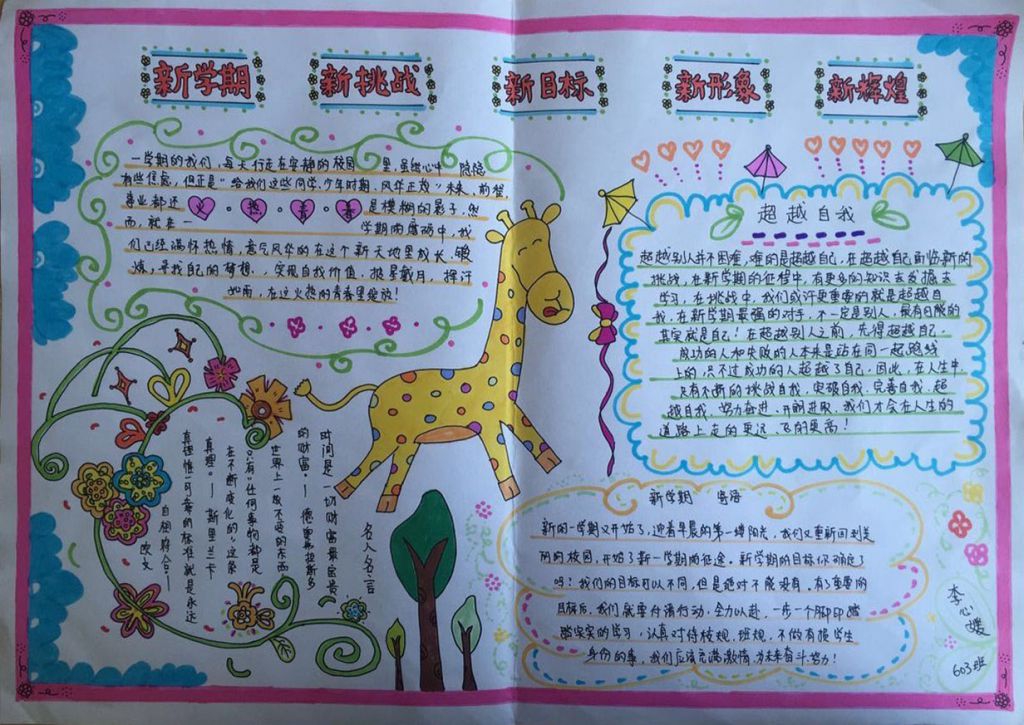 新学期 新挑战 新目标 新形象 新辉煌
一学期的我们，每天行走在安静的校园里，虽然心中隐隐
有些焦虑，但正是“给我们这些同学，少年时期、风华正茂”未来、前程、
事业都还 火·热·青·春 是模糊的影子，然
而，就在一 学期的磨砺中，我
们已经满怀热情，意气风华的在这个新天地里成长、锻
炼，寻找自己的梦想，实现自我价值，披星戴月，挥汗
如雨，在这火热的青春里绽放！
超越自我
超越别人并不困难，难的是超越自己，在超越自己面临新的
挑战，在新学期的征程中，有更多的知识去发掘去
学习，在挑战中，我们或许更重要的就是超越自
我，在新学期最强的对手，不一定是别人，最有可能的
其实就是自己！在超越别人之前，先得超越自己．
成功的人和失败的人本来是站在同一起跑线
上的，只不过成功的人超越了自己．因此，在人生中
只有不断的挑战自我、突破自我、完善自我、超
越自我、努力奋进、开朗进取，我们才会在人生的
道路上走的更远、飞的更高！
名人名言
时间是一切财富最宝贵
的财富．—德奥弗拉斯多
世界上一成不变的东西
只有“任何事物都是
在不断变化的”这条
真理．—斯里兰卡
真理惟一可靠的标准就是永远
自相符合—
欧文
新学期 寄语
新的一学期又开始了，迎着早晨的第一缕阳光，我们又重新回到美
丽的校园，开始了新一学期的征途．新学期的目标你确定了
吗？我们的目标可以不同，但是绝对不能没有．有了重要的
目标后，我们就要付诸行动，全力以赴，一步一个脚印踏
踏实实的学习，认真对待校规、班规，不做有损学生
身份的事，我们应该充满激情，为未来奋斗、努力！
李心媛
603班